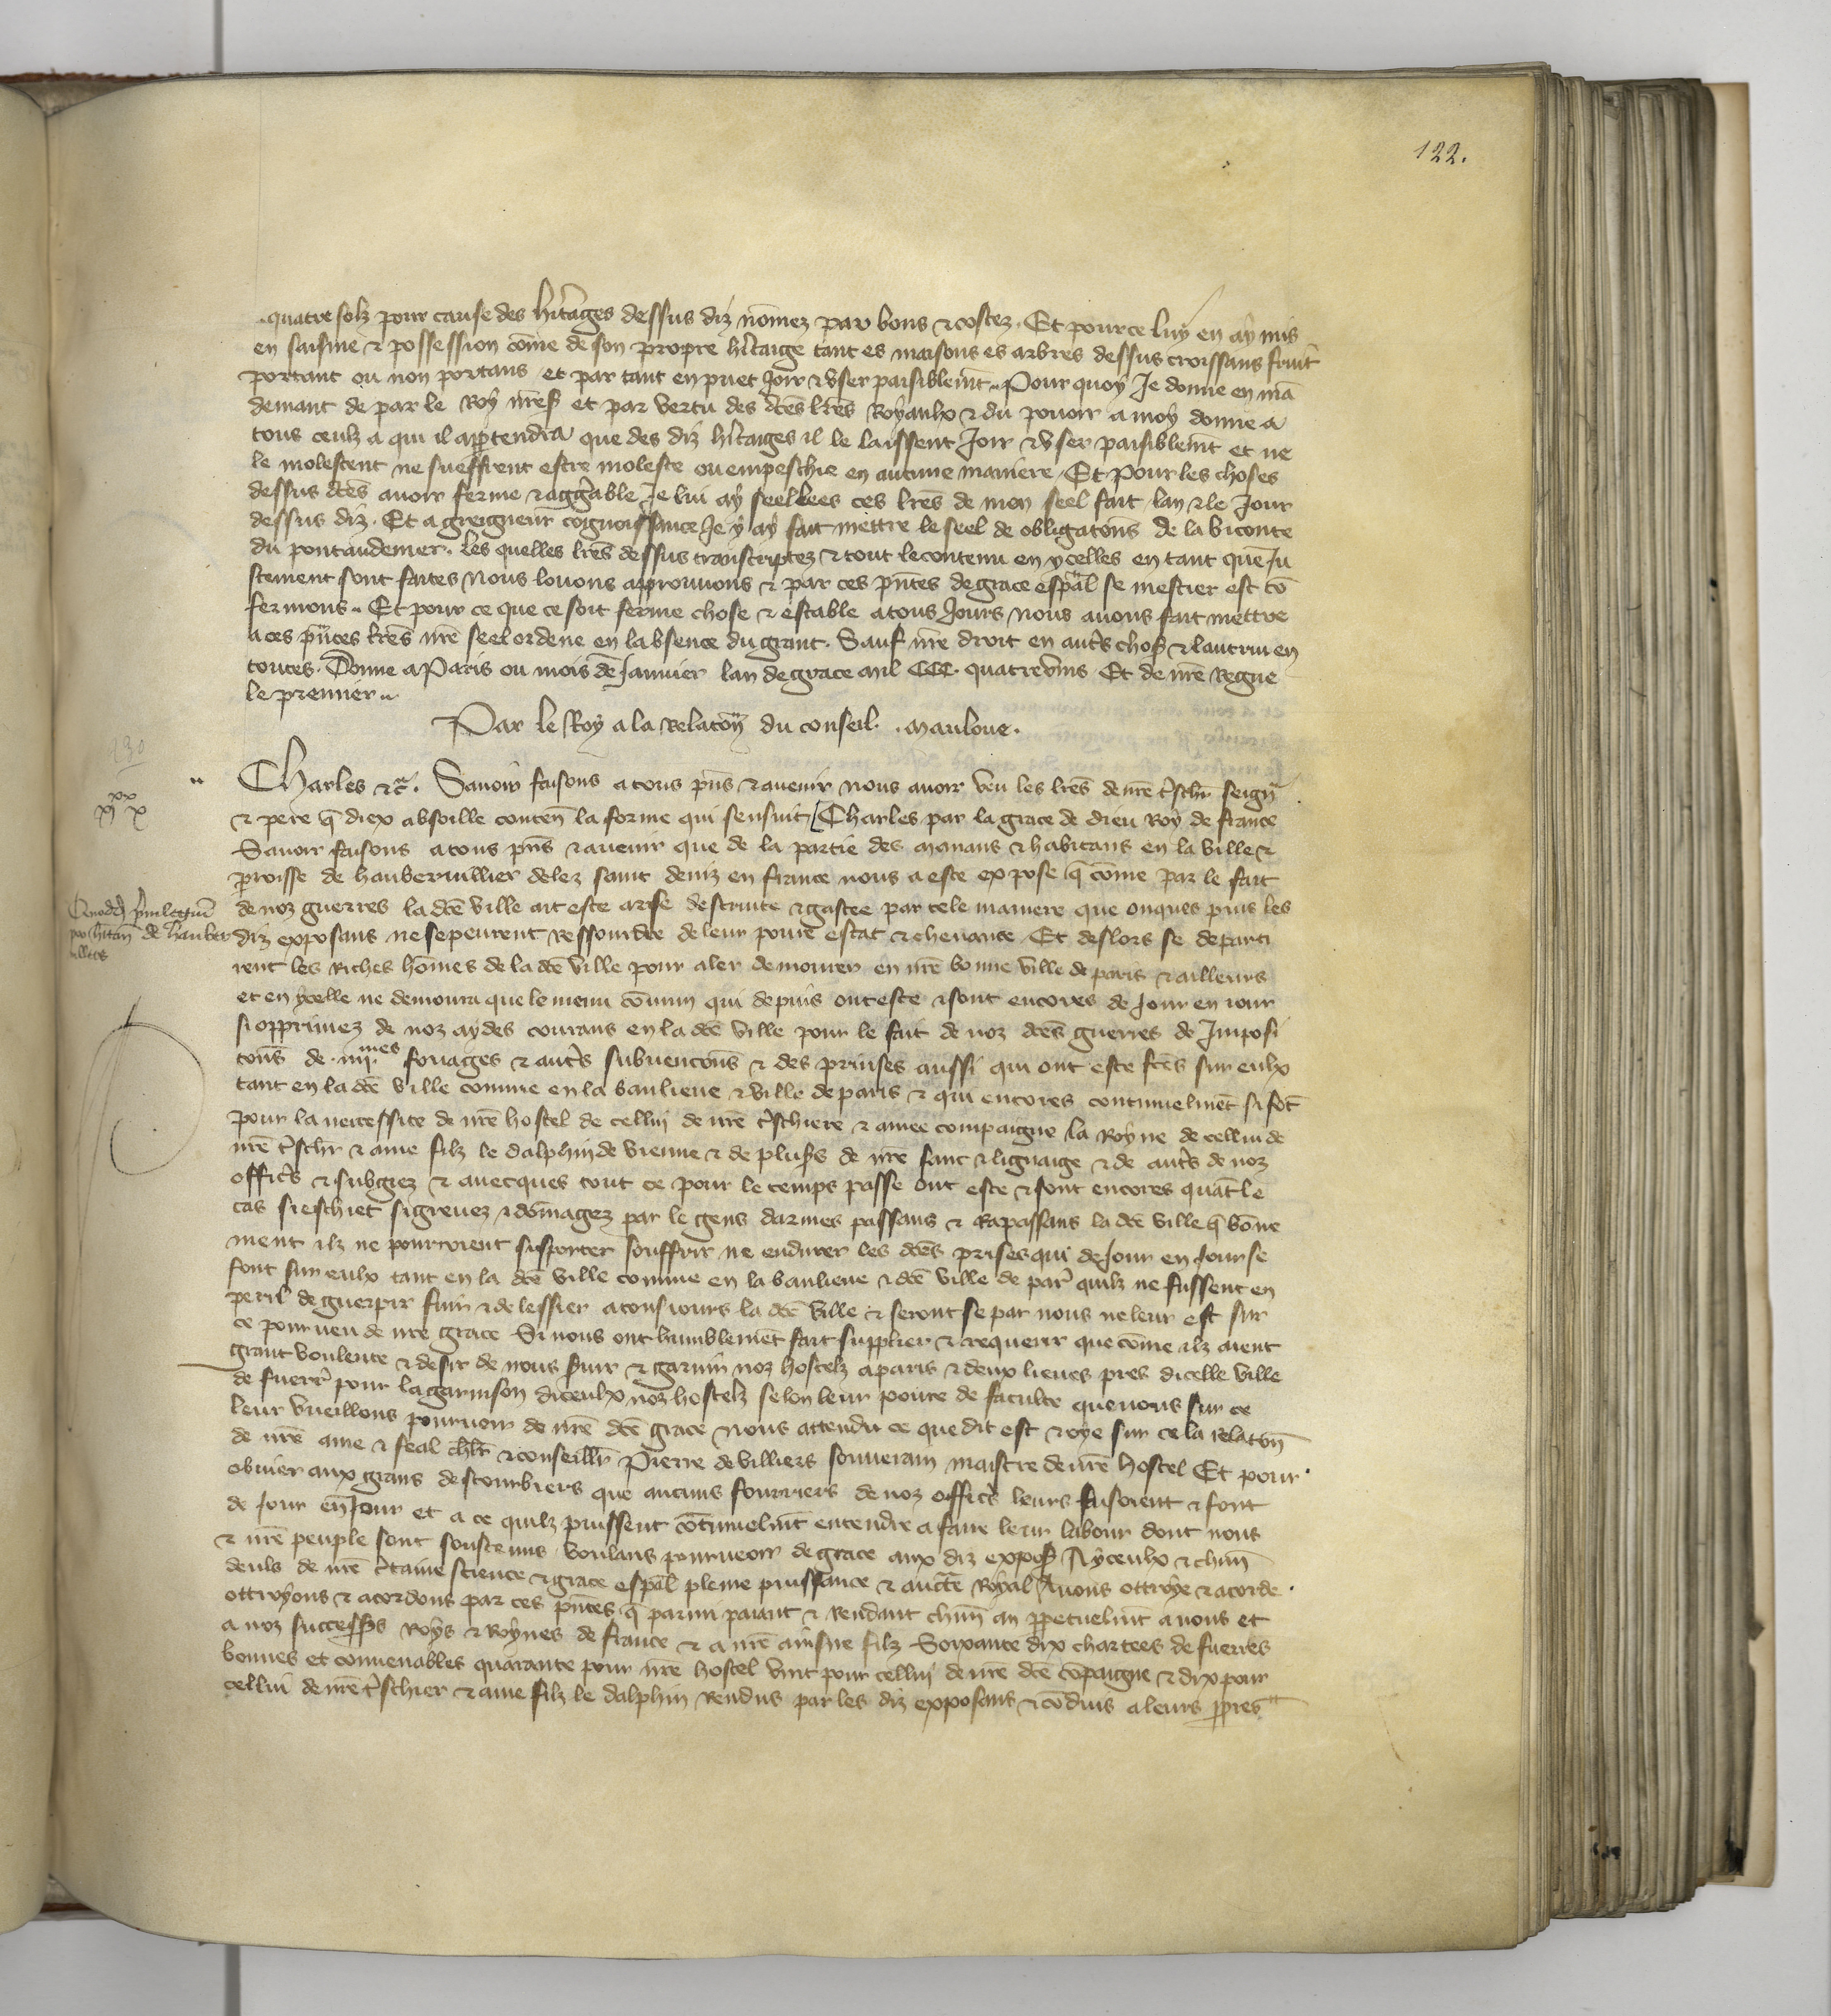 122.
quatre solz pour cause des hẽtages dessus diz nõmez par bons & costez. Et pour ce luy en ay mis
en saisine & possession cõme de son propre hẽtaige tant es maisons es arbres dessus croissans fruit
portant ou non portans et par tant en puet Joir & user paisiblemt̃. Pour quoy Je donne en mã
demant de par le Roy nr̃es et par vertu des dc̃es lr̃es Royaulx & du pouoir a moy donne a
tous ceulz a qui il appartendra que des diz hẽtaiges il le laissent Joir & user paisiblemt̃ et ne
le molestent ne sueffrent estre moleste ou empeschie en aucune maniere. Et Pour les choses
dessus dc̃es auoir ferme & aggreable Je lui ay seellees ces lr̃es de mon seel fait lan & le Jour
dessus diz. Et a greigneur cognoissance Je y ay fait mettre le seel de obligatõns de la viconte
du pontaudemer. les quelles lr̃es dessus transcriptez & tout le contenu en ycelles en tant que Ju
stement sont faites Nous louons approuuons & par ces pñtes de grace esp̃al se mestier est cõ
fermons. Et pour ce que ce soit ferme chose & estable a tous Jours nous auons fait mettre
a ces pñtes lr̃es nr̃e seel ordene en labsence du grant. Sauf nr̃e droit en autr̃s chos̃ & lautrui en
toutes. Donne a Paris ou mois de Januier lan de grace mil CCC. quatrevins Et de nr̃e Regne
le premier.
Par le Roy a la Relatoñ du conseil. Mauloue.
Charles &c̃. Sauoir faisons a tous pñs & auenir nous auoir veu les lr̃es de nr̃e tr̃schr̃ seigñ
& pere q̃ diex absoille conteñ la forme qui sensuit Charles par la grace de dieu Roy de france
Sauoir faisons a tous pñs & auenir que de la partie des manans & habitans en la ville &
proisse de hauberuillier delez saint deniz en france nous a este expose q̃ cõme par le fait
Quoddã priuilegiũ
de noz guerres la dc̃e ville ait este arse destruite & gastee par tele maniere que onques puis les
pro hitañ de hauber
diz exposans ne se peurent ressourdre de leur poure estat & cheuance. Et deslors se departi
uilliers
rent les Riches hõmes de la dc̃e ville pour aler demourer en nr̃e bonne ville de paris & ailleurs
et en ycelle ne demoura que le menu cõmun qui depuis ont este & sont encores de Jour en iour
si opprimez de noz aydes courans en la dc̃e ville pour le fait de noz dc̃es guerres de Imposi
tõns de .iiii.mes fouages & autr̃s subuencõns & des prinses aussi qui ont este fc̃es sur eulx
tant en la dc̃e ville comme en la banlieue & ville de paris & qui encores continuelmẽt si fõt
pour la necessite de nr̃e hostel de cellui de nr̃e tr̃schiere & amee compaigne la Royne de cellui de
nr̃e tr̃schr̃ & ame filz le dalphin de vienne & de plus̃s de nr̃e sanc & lignaige & de autr̃s de noz
offic̃s & subgez & auecques tout ce pour le temps passe ont este & sont encores quãt le
cas si eschiet si greuez & dõmagez par le gens darmes passans & Rapassans la dc̃e ville q̃ bõne
ment ilz ne pourroient supporter souffrir ne endurer les dc̃es prises qui de Jour en Jour se
font sur eulx tant en la dc̃e ville comme en la banlieue & dc̃e ville de par̃ quilz ne fussent en
peril de guerpir fuir & delessier a tous iours la dc̃e ville & seront se par nous ne leur est sur
ce pourueu de nr̃e grace Si nous ont humblemẽt fait supplier & requerir que cõme ilz aient
grant voulente & desir de nous s̃uir & garnir noz hostelz a paris & deux lieues pres dicelle ville
de fuerr̃ pour la garnison diceulx noz hostelz selon leur poure de faculte que nous sur ce
leur vueillons pourueoir de nr̃e dc̃e grace nous attendu ce que dit est & oye sur ce la relatoñ
de nr̃e ame & feal chlr̃ & conseillr̃ Pierre de villiers souuerain maistre de nr̃e hostel Et pour
obuier aux grans destourbiers que aucuns fourriers de noz offic̃s leurs faisoient & font
de Jour en Jour et a ce quilz puissent cõtinuelmt̃ entendre a faire leur labour dont nous
& nr̃e peuple sont soustenus voulans pourueoir de grace aux diz expos̃ A yceulx & chũn
deuls de nr̃e c̃taine science & grace esp̃al pleine puissance & auct̃e Royal Auons ottroye & acorde
ottroyons & acordons par ces pñtes q̃ parmi paiant & Rendant chũn an ꝑpetuelmt̃ a nous et
a noz success̃s Roys & Roynes de france & a nr̃e ainsne filz Soixante dix chartees de fuerres
bonnes et conuenables quarante pour nr̃e hostel vint pour cellui de nr̃e dc̃e cõpaigne & dix pour
cellui de nr̃e tr̃schier & ame filz le dalphin Rendus par les diz exposans & cõduis a leurs ꝓpres